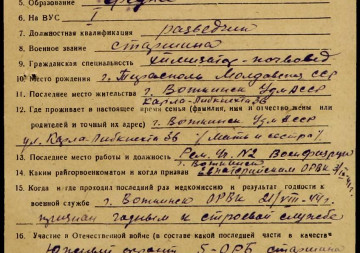 5. Образование
6. На ВУС I
7. Должностная квалификация разведчик
8. Военное звание старшина
9. Гражданская специальность
10. Место рождения г. Тирасполь Молдавской ССР
11. Последнее место жительства г. Воткинск УдмАССР
Карла-Либкнехта 36
12. Где проживает в настоящее время семья (фамилия, имя и отчество жены или
родителей и точный их адрес) г. Воткинск УдмАССР
ул. Карла-Либкнехта 36 (мать и сестра)
13. Последнее место работы и должность Рем. Уч. №2
г. Воткинск
14. Каким райгорвоенкоматом и когда призван ОРВК
15. Когда и где проходил последний раз медкомиссию и результат годности к
военной службе г. Воткинск ОРВК 21/VIII-44г.
признан годным к строевой службе
16. Участие в Отечественной войне (в составе какой последней части в качестве
фронт 5-ОРБ старшина